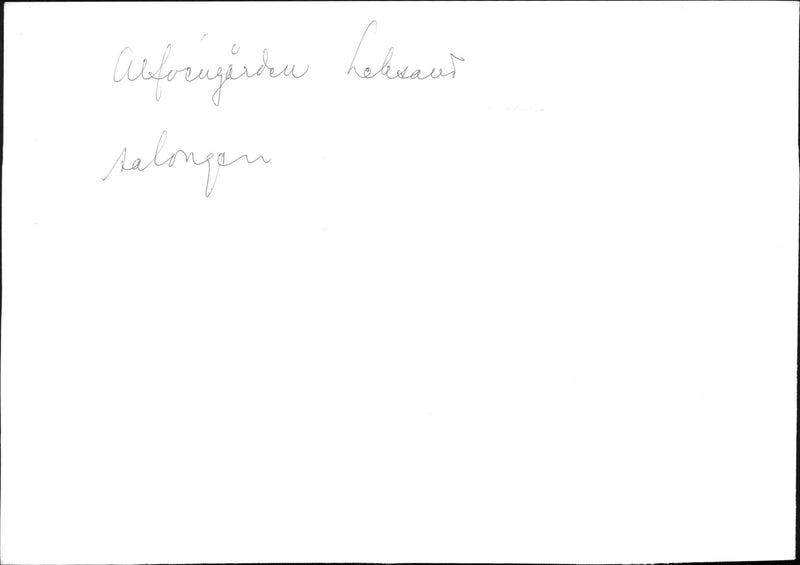 Alfvéngården Leksand
salongen